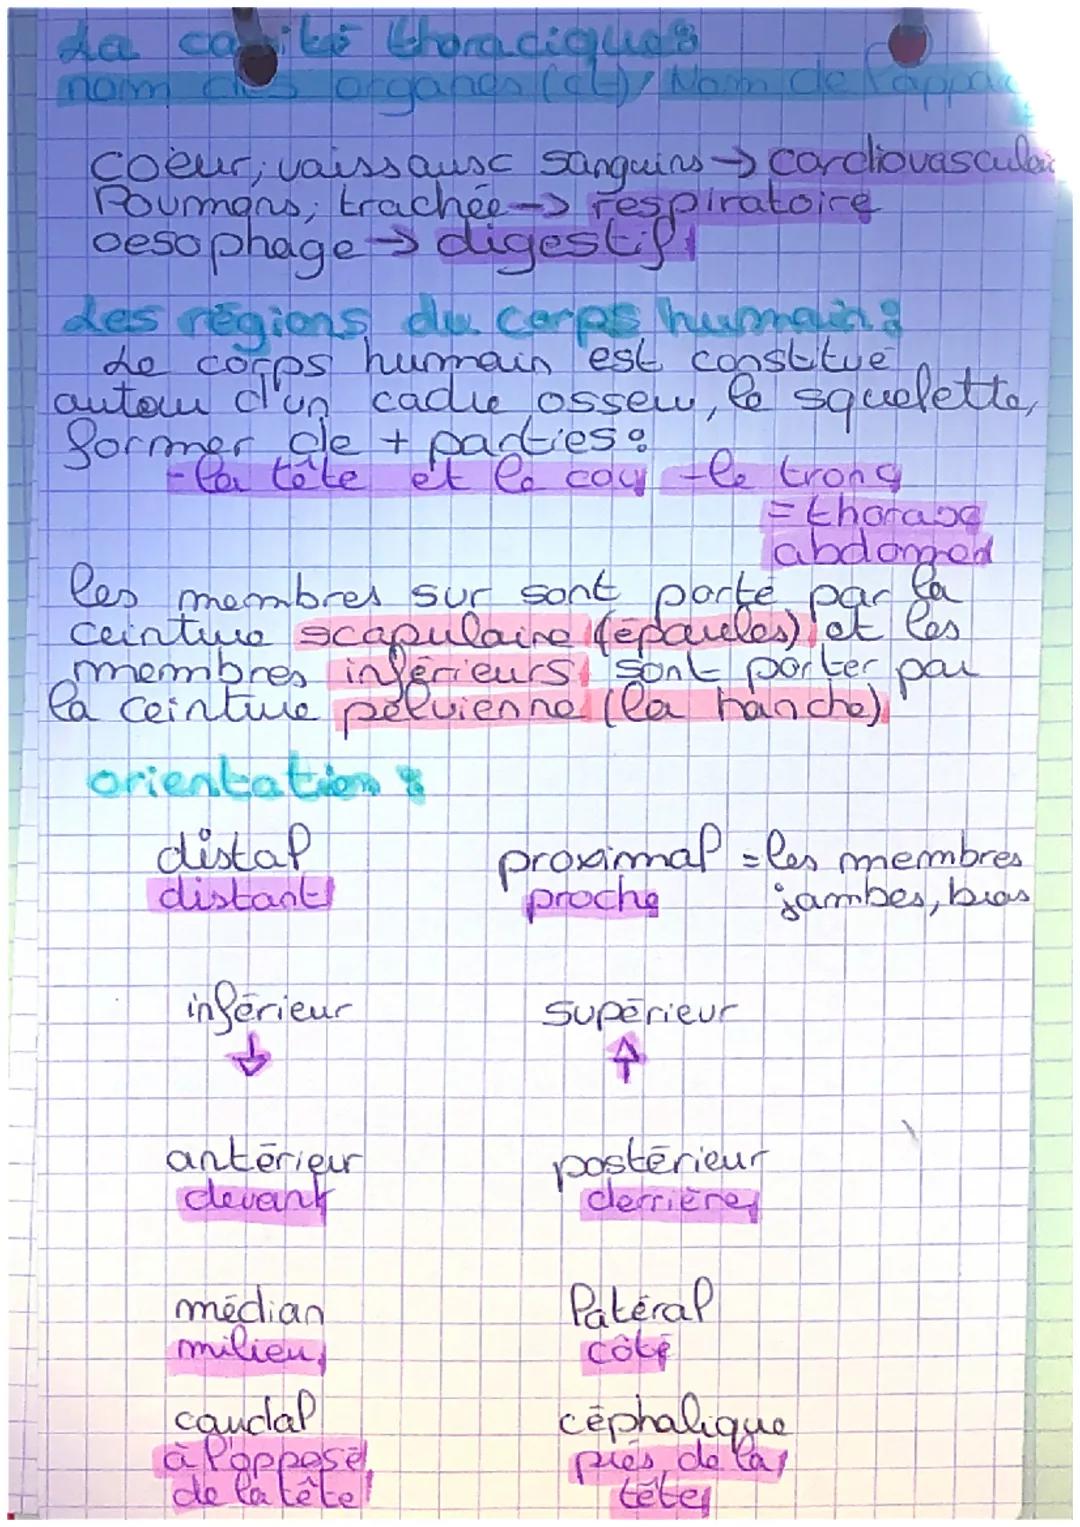 La cavité thoracique:
nom des organes (ct)/ Nom de l'appar
coeur, vaissause sanguins → cardiovasculai
Poumons, trachée → respiratoire
oesophage → digestif
Les régions du corps humain:
Le corps humain est constitué
autour d'un cadre osseu, le squelette,
former de + parties:
-la tête et le cou -le tronc
= thorax
abdomen
les membres sur sont porté par la
ceinture scapulaire (épaules) et les
membres inférieurs sont porter par
la ceinture pelvienne (la hanche)
orientation:
distal proximal = les membres
distant proche jambes, bras
inférieur supérieur
↓ ↑
antérieur postérieur
devant derrière
médian latéral
milieu côté
caudal céphalique
à l'opposé près de la
de la tête tête